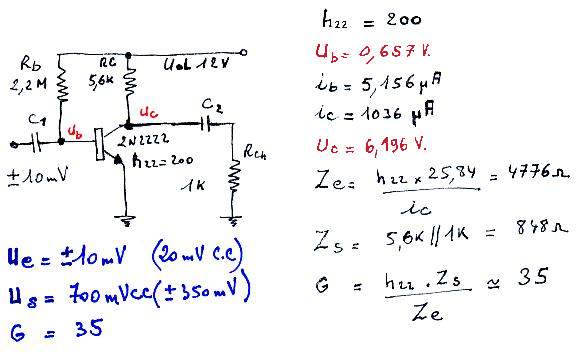 Rb
2,2M
RC
5,6K
Ual 12V
C1
ub
uc
C2
2N2222
h22=200
Rch
1K
±10mV
Ue = ±10mV (20mV C.C)
Us = 700mVcc (±350mV)
G = 35
h22 = 200
Ub = 0,657 V.
ib = 5,156 µA
ic = 1036 µA
Uc = 6,196 V.
Ze = h22 × 25,84 / ic = 4776 Ω
Zs = 5,6K//1K = 848 Ω
G = h22 . Zs / Ze ≃ 35